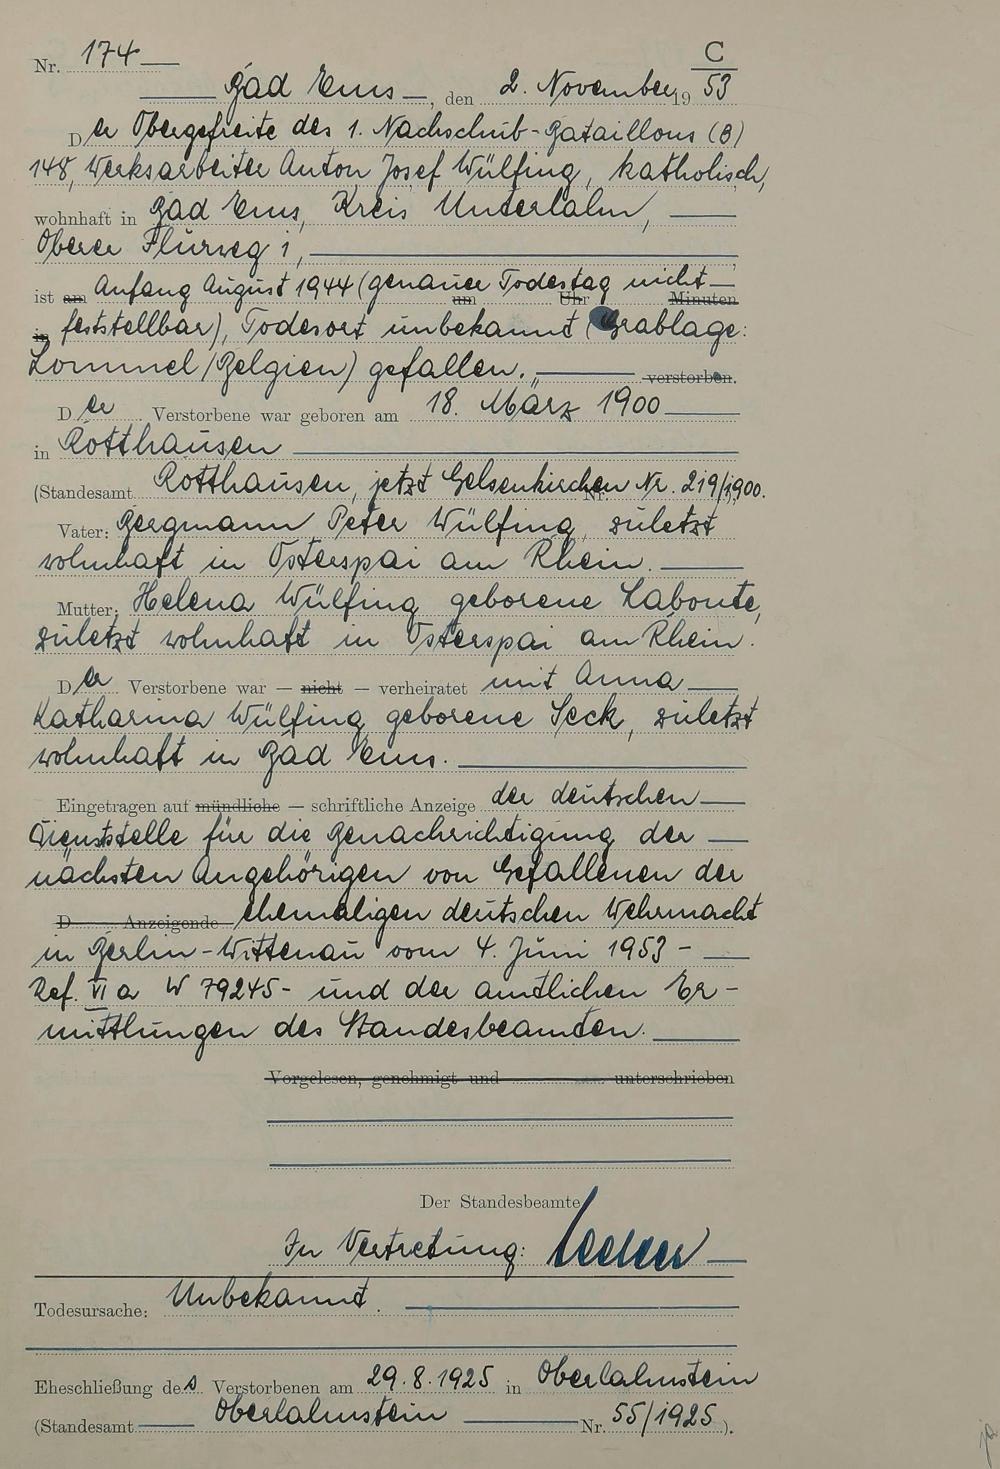 C
Nr. 174
Bad Ems, den 2. November 19 53
Der Obergefreite des 1. Nachschub-Bataillons (B)
148, Werksarbeiter Anton Josef Wülfing, katholisch,
wohnhaft in Bad Ems, Kreis Unterlahn,
Oberer Flurweg 1,
ist am Anfang August 1944 (genauer Todestag nicht
um Uhr Minuten
in feststellbar), Todesort unbekannt (Grablage:
Lommel/Belgien) gefallen. verstorben.
Der Verstorbene war geboren am 18. März 1900
in Rotthausen
(Standesamt Rotthausen, jetzt Gelsenkirchen Nr. 219/1900.
Vater: Bergmann Peter Wülfing, zuletzt
wohnhaft in Osterspai am Rhein.
Mutter: Helena Wülfing geborene Labonte,
zuletzt wohnhaft in Osterspai am Rhein.
Der Verstorbene war — nicht — verheiratet mit Anna
Katharina Wülfing geborene Seck, zuletzt
wohnhaft in Bad Ems.
Eingetragen auf mündliche — schriftliche Anzeige der deutschen
Dienststelle für die Benachrichtigung der
nächsten Angehörigen von Gefallenen der
D Anzeigende ehemaligen deutschen Wehrmacht
in Berlin-Wittenau vom 4. Juni 1953 -
Ref. VI a W 79245- und der amtlichen Er-
mittlungen des Standesbeamten.
Vorgelesen, genehmigt und unterschrieben
Der Standesbeamte
In Vertretung:
Todesursache: Unbekannt.
Eheschließung des Verstorbenen am 29.8.1925 in Oberlahnstein
(Standesamt Oberlahnstein Nr. 55/1925).